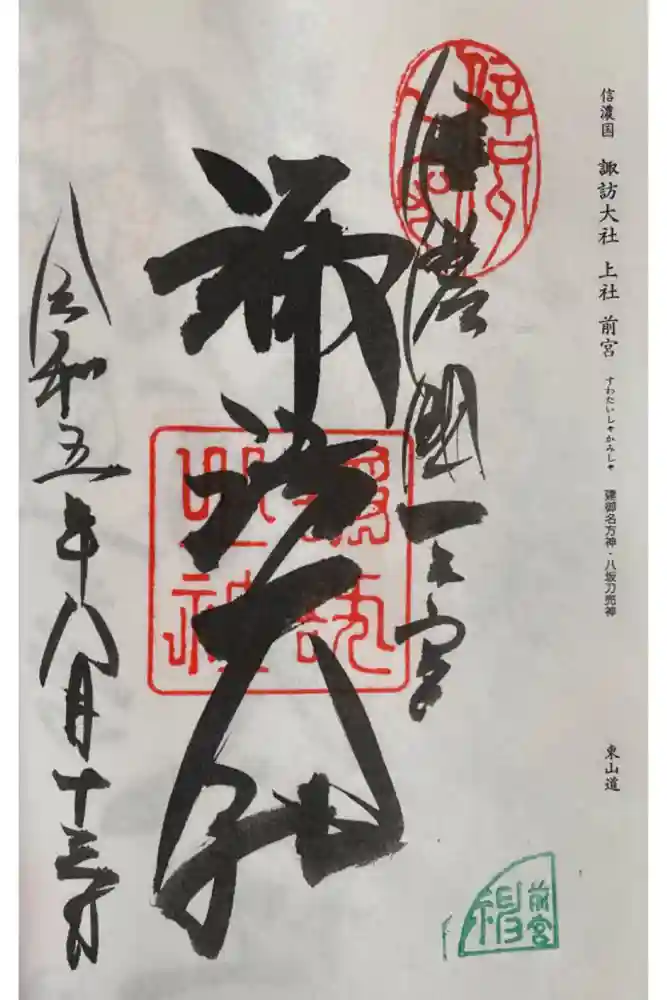 信濃国 諏訪大社 上社 前宮 すわたいしゃかみしゃ 建御名方神・八坂刀売神 東山道
信濃國一之宮
諏訪大社
令和五年八月十三日
諏訪
之社
前宮